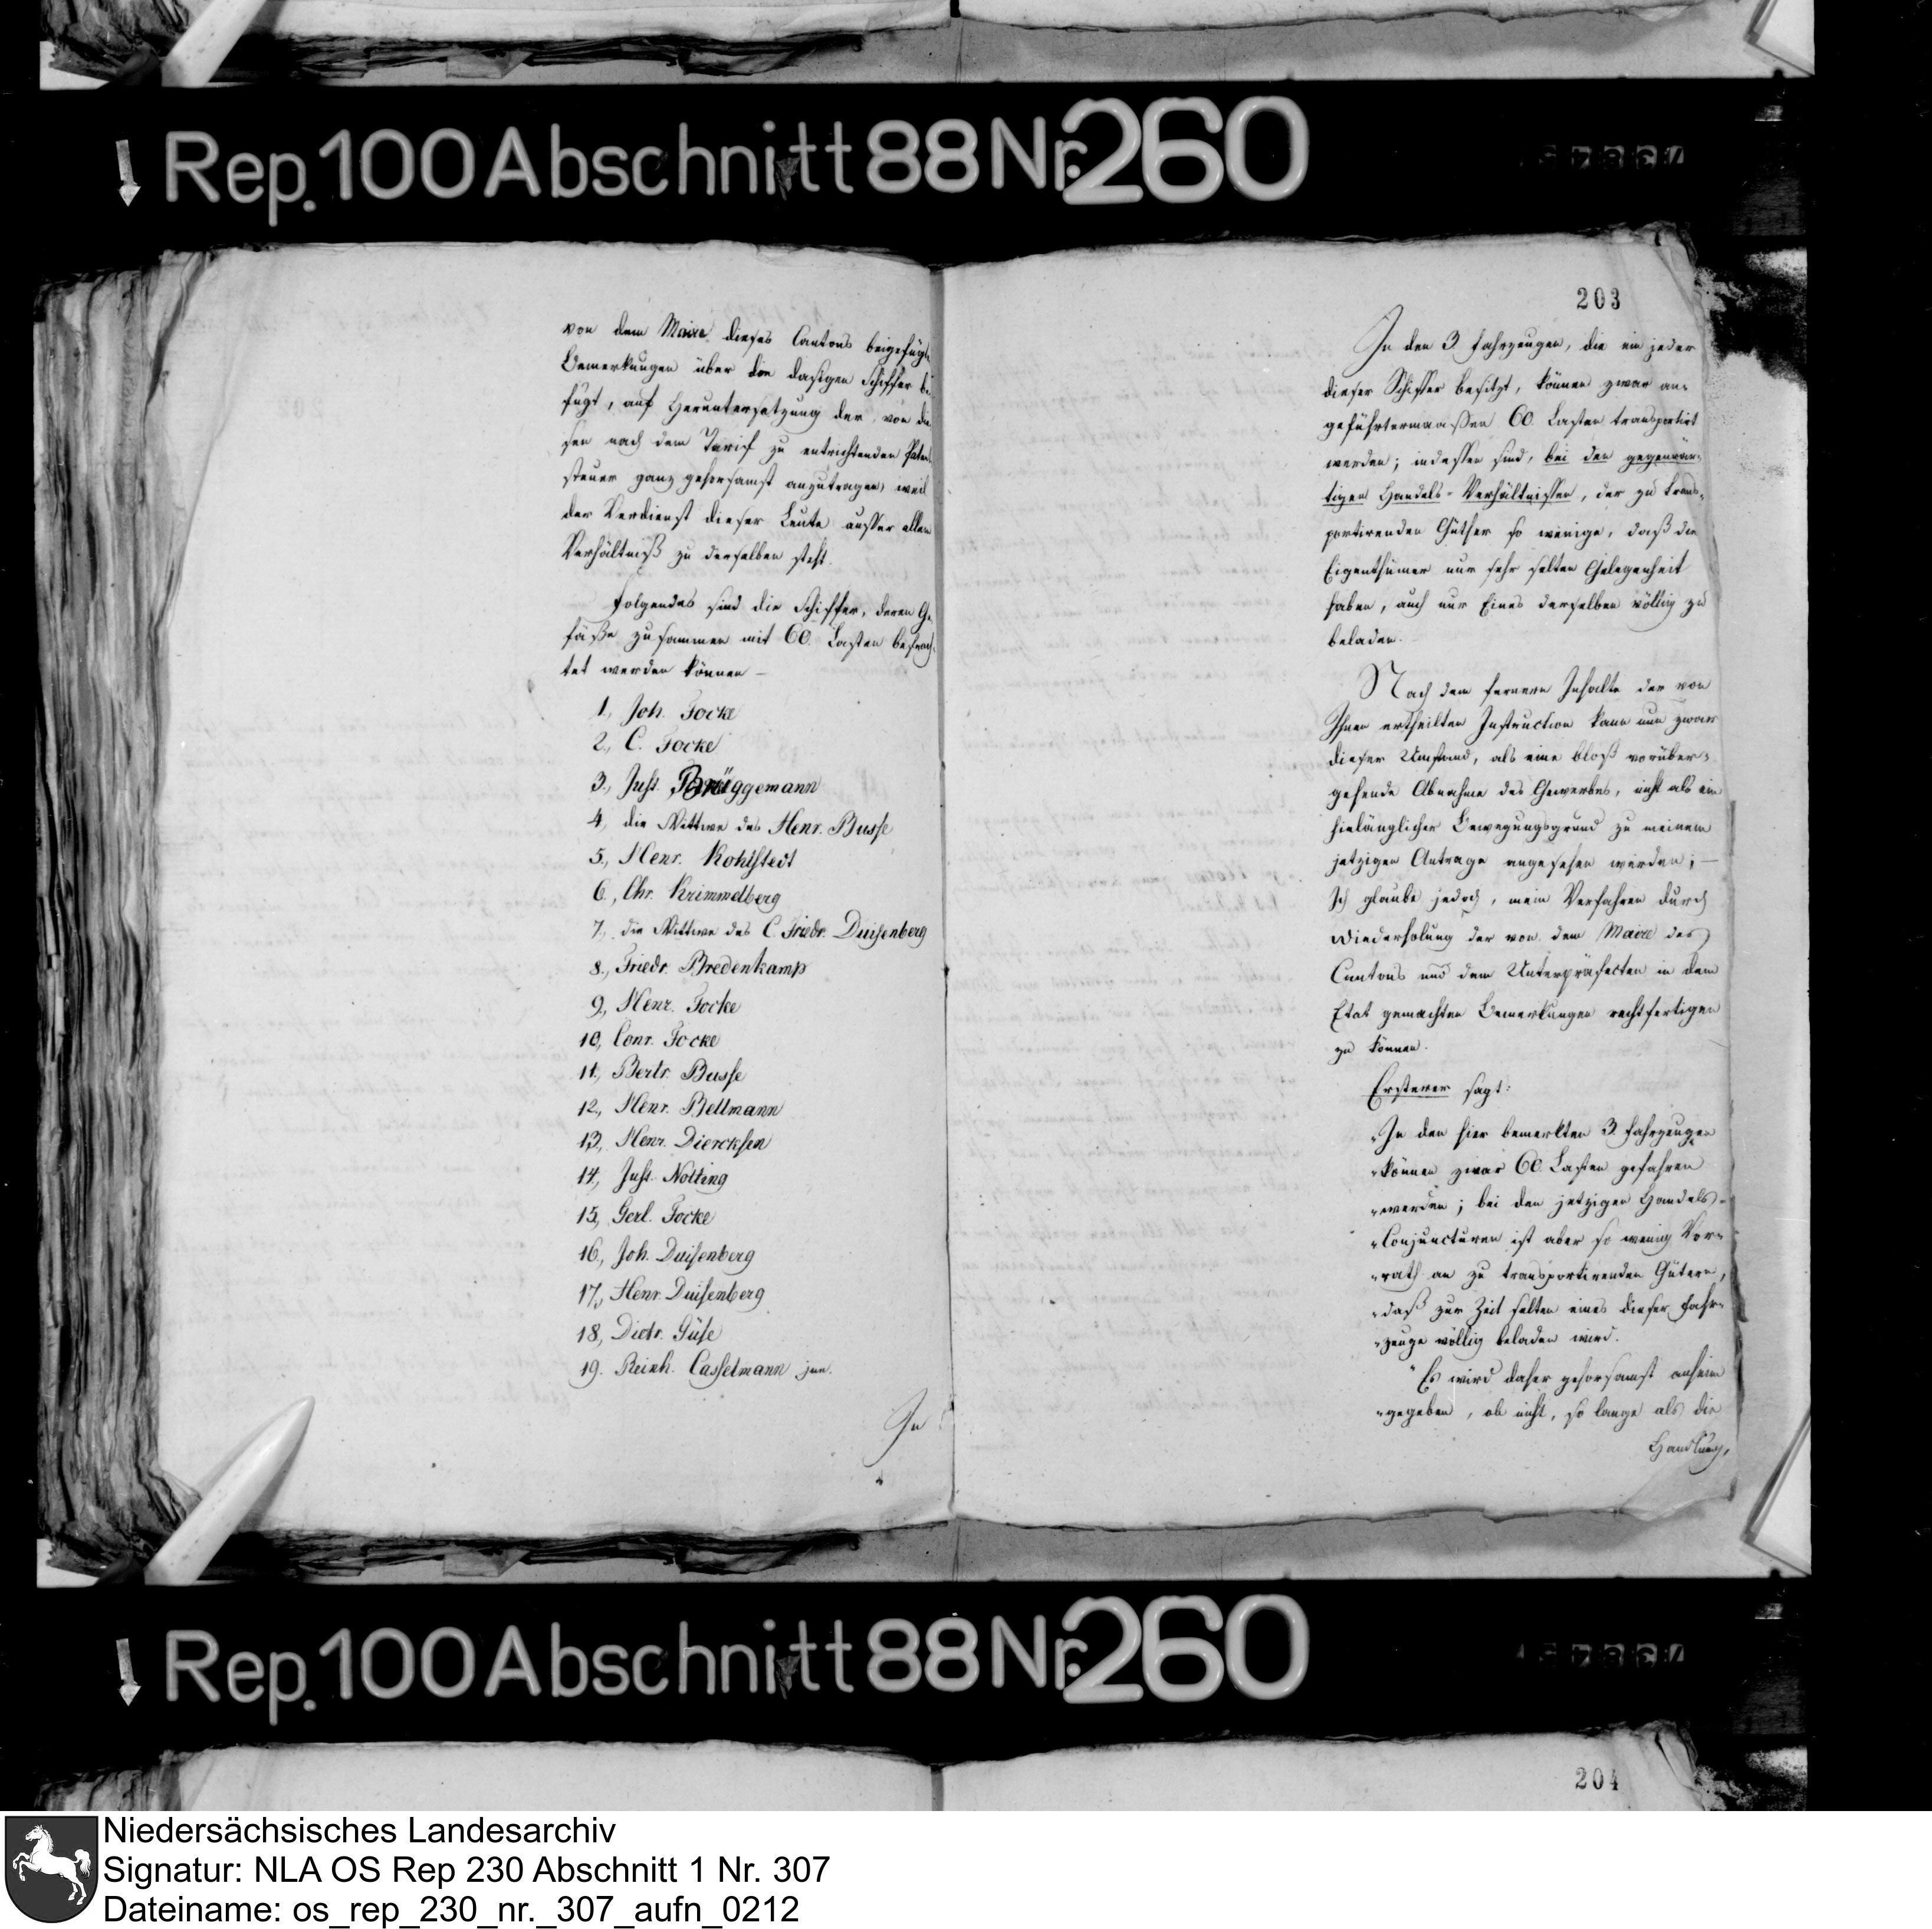 Rep. 100 Abschnitt 88 Nr. 260
von dem Maire dieses Cantons beigefügte
Bemerkungen über die dasigen Schiffer be
fügt, auf Heruntersetzung der, von die
sen nach dem Tarif zu entrichtenden Patent
steuer ganz gehorsamst anzutragen, weil
der Verdienst dieser Leute ausser allem
Verhältniß zu derselben steht.
Folgendes sind die Schiffer, deren Ge
fäße zusammen mit 60. Lasten befrach
tet werden können –
1., Joh. Focke
2., C. Focke
3., Just. Brüggemann
4, die Wittwe des Henr. Busse
5., Henr. Kohlstedt
6., Chr. Krimmelberg
7., die Wittwe des C. Friedr. Duisenberg
8., Friedr. Bredenkamp
9., Henr. Focke
10, Conr. Focke
11., Bertr. Busse
12., Henr. Bellmann
13, Henr. Diercksen
14, Just. Nolting
15, Gerl. Focke
16., Joh. Duisenberg
17., Henr. Duisenberg
18, Dietr. Güse
19. Reinh. Casselmann jun.
In
203
In den 3 Fahrzeugen, die ein jeder
dieser Schiffer besitzt, können zwar an-
geführtermaaßen 60. Lasten transportirt
werden; indessen sind, bei den gegenwär-
tigen Handels-Verhältnissen, der zu trans-
portirenden Güther so wenige, daß die
Eigenthümer nur sehr selten Gelegenheit
haben, auch nur Eines derselben völlig zu
beladen.
Nach dem fernern Inhalte der von
Ihnen ertheilten Instruction kann nun zwar
dieser Umstand, als eine bloß vorüber-
gehende Abnahme des Gewerbes, nicht als ein
hinlänglicher Bewegungsgrund zu meinem
jetzigen Antrage angesehen werden; –
Ich glaube jedoch, mein Verfahren durch
Wiederholung der von dem Maire des
Cantons und dem Unterpräfecten in dem
Etat gemachten Bemerkungen rechtfertigen
zu können.
Ersterer sagt:
"In den hier bemerkten 3. Fahrzeugen
"können zwar 60. Lasten gefahren
"werden; bei den jetzigen Handels-
"Conjuncturen ist aber so wenig Vor-
"rath an zu transportirenden Gütern,
"daß zur Zeit selten eines dieser Fahr-
"zeuge völlig beladen wird.
"Es wird daher gehorsamst anheim
"gegeben, ob nicht, so lange als die
Handlung,
Rep. 100 Abschnitt 88 Nr. 260
204
Niedersächsisches Landesarchiv
Signatur: NLA OS Rep 230 Abschnitt 1 Nr. 307
Dateiname: os_rep_230_nr._307_aufn_0212